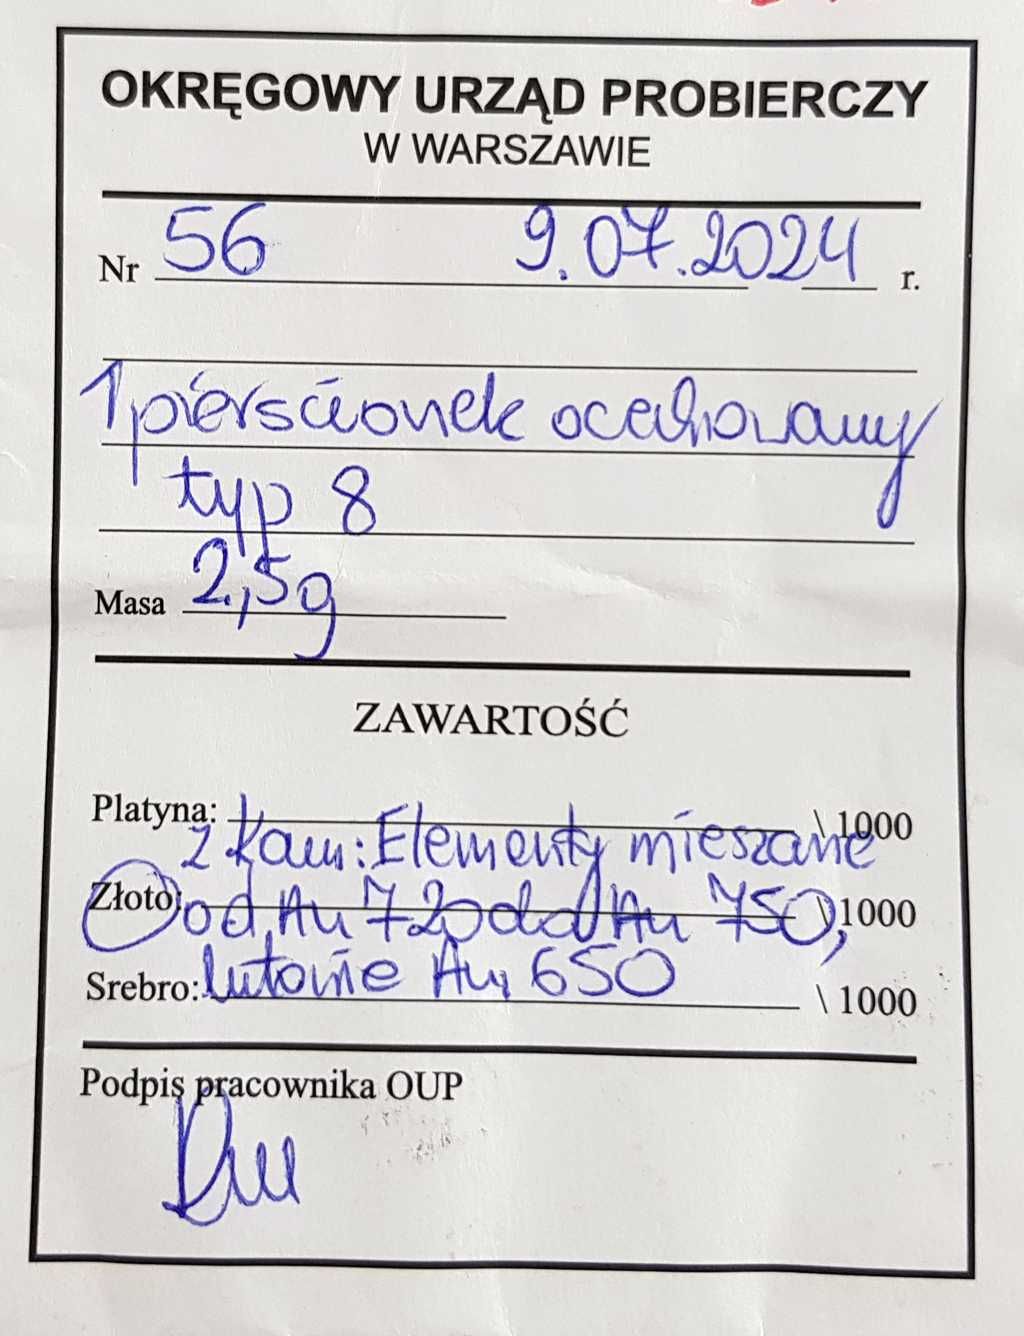 OKRĘGOWY URZĄD PROBIERCZY
W WARSZAWIE
Nr 56 9.07.2024 r.
1 pierścionek ocechowany
typ 8
Masa 2,5g
ZAWARTOŚĆ
Platyna: \ 1000
z kam: Elementy mieszane
Złoto: od Au 720 do Au 750, \ 1000
Srebro: lutowie Au 650 \ 1000
Podpis pracownika OUP